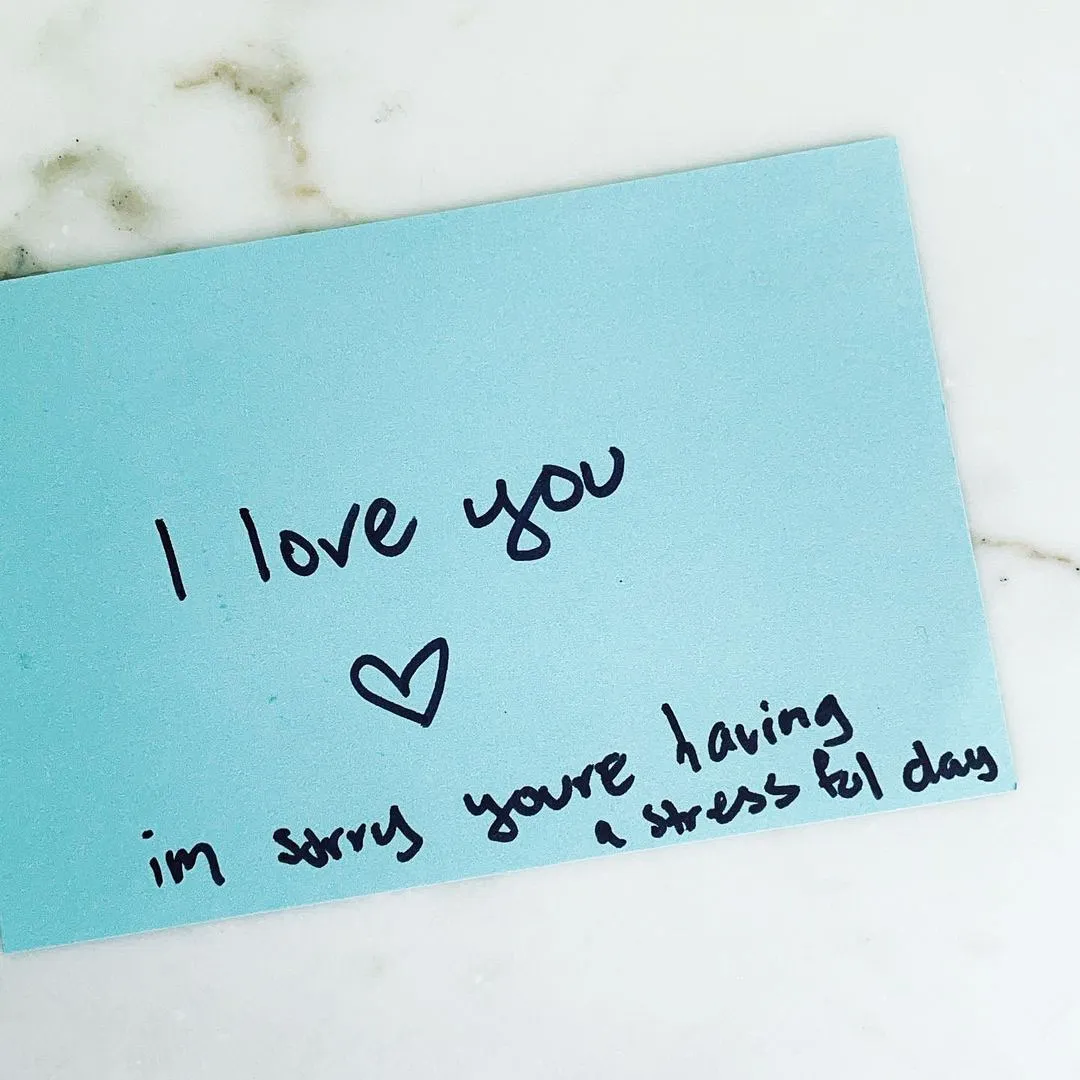 I love you
im sorry youre having
a stressful day